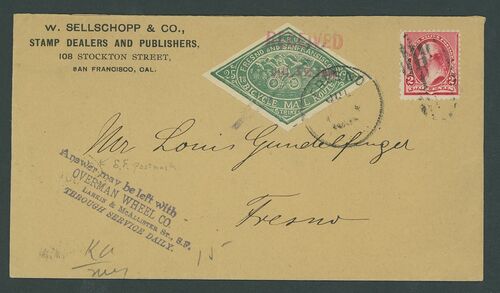 W. SELLSCHOPP & CO.,
STAMP DEALERS AND PUBLISHERS,
108 STOCKTON STREET,
SAN FRANCISCO, CAL.
RECEIVED
FRESNO AND SAN FRANCISCO
25
BICYCLE MAIL ROUTE
STRIKE
FRESNO
2 2
TWO CENTS
Mr Louis Gundelfinger
Fresno
S.F. postmark
Answer may be left with
OVERMAN WHEEL CO.
LARKIN & McALLISTER St., S.F.
THROUGH SERVICE DAILY.
15